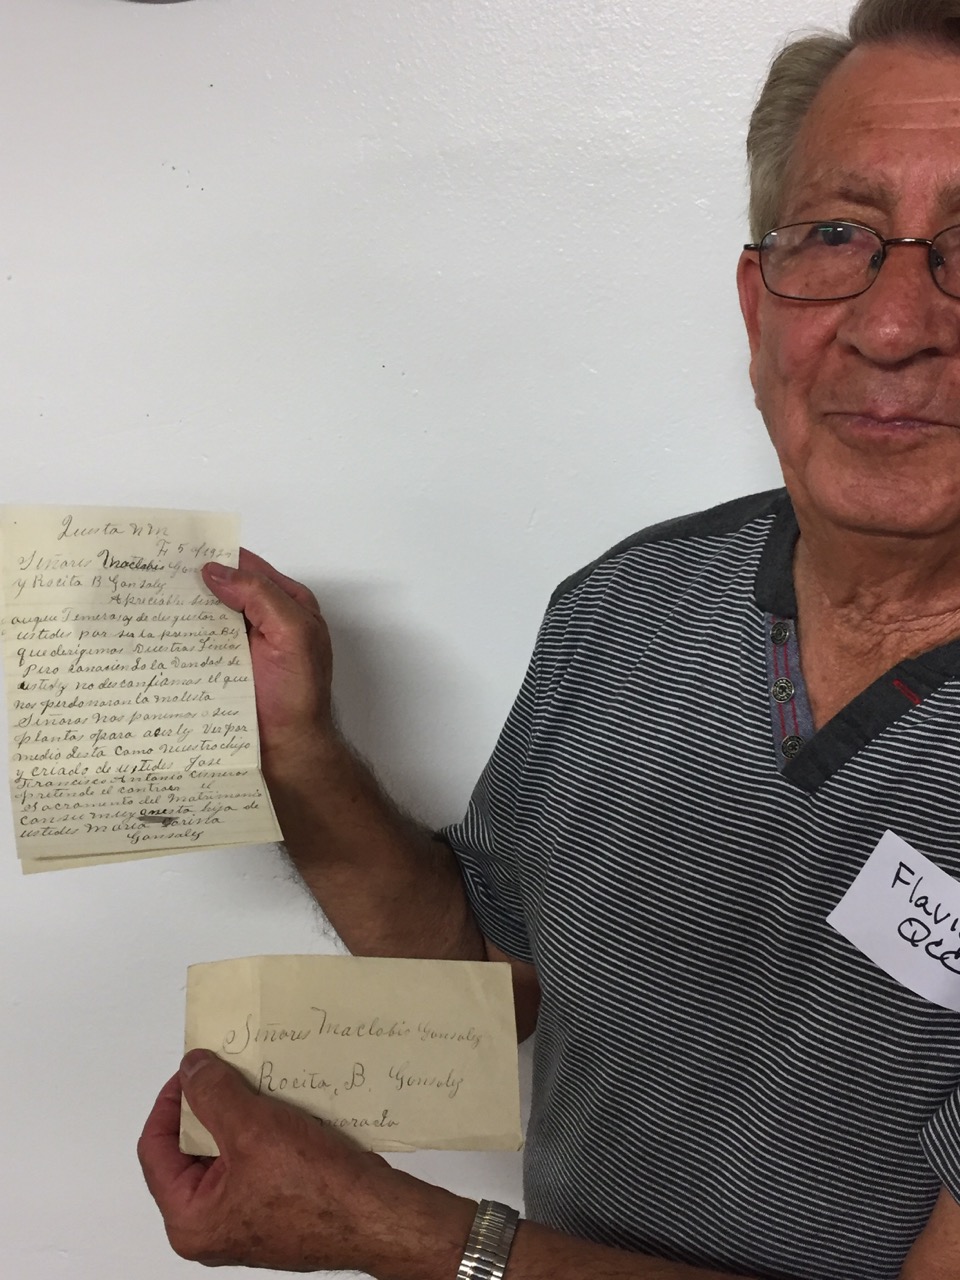 Questa NM
F 5 of 192
Señores Maclobio Gon
y Rocita B Gonsalez
Apreciable Seño
auque Temerosos de desgustar a
ustedes por ser la premera Bes
que derigimos Nuestras Linias
Pero conociendo la Bondad de
ustedes no desconfiamos el que
nos perdonaran la molesta
Señores nos ponemos a sus
plantas para aserles Ver por
medio desta como Nuestro hijo
y criado de ustedes Jose
Francisco Antonio Cisneros
pretende el contraer el
Sacramento del Matrimonio
con su muy onesta hija de
ustedes Maria Corina
Gonsalez
Señores Maclobio Gonsalez
Rocita, B. Gonsalez
Flavi